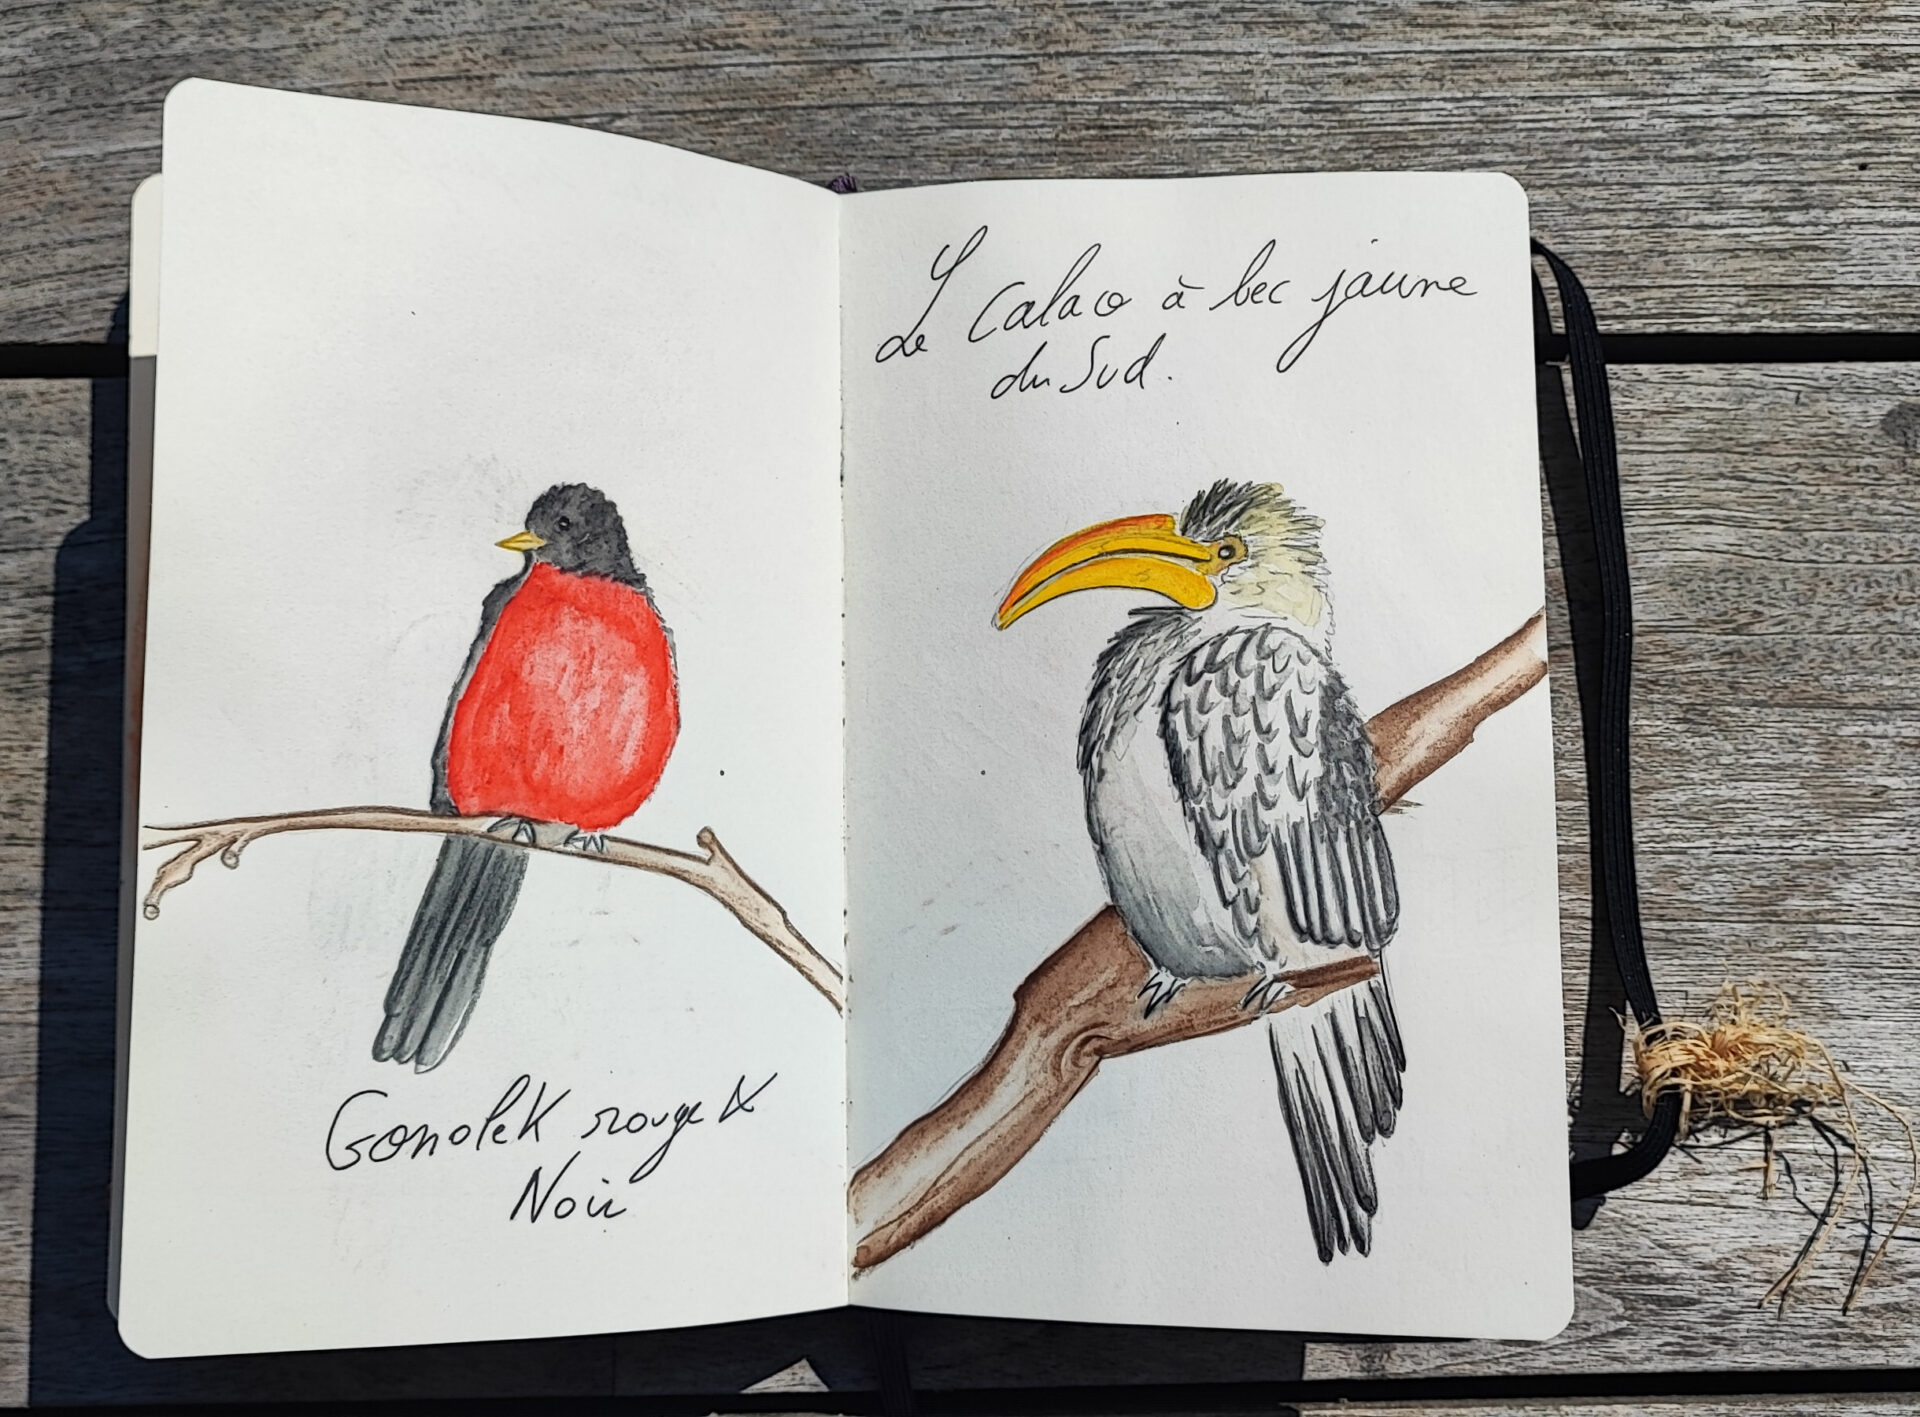 Gonolek rouge &
Noir
Le Calao à bec jaune
du Sud.